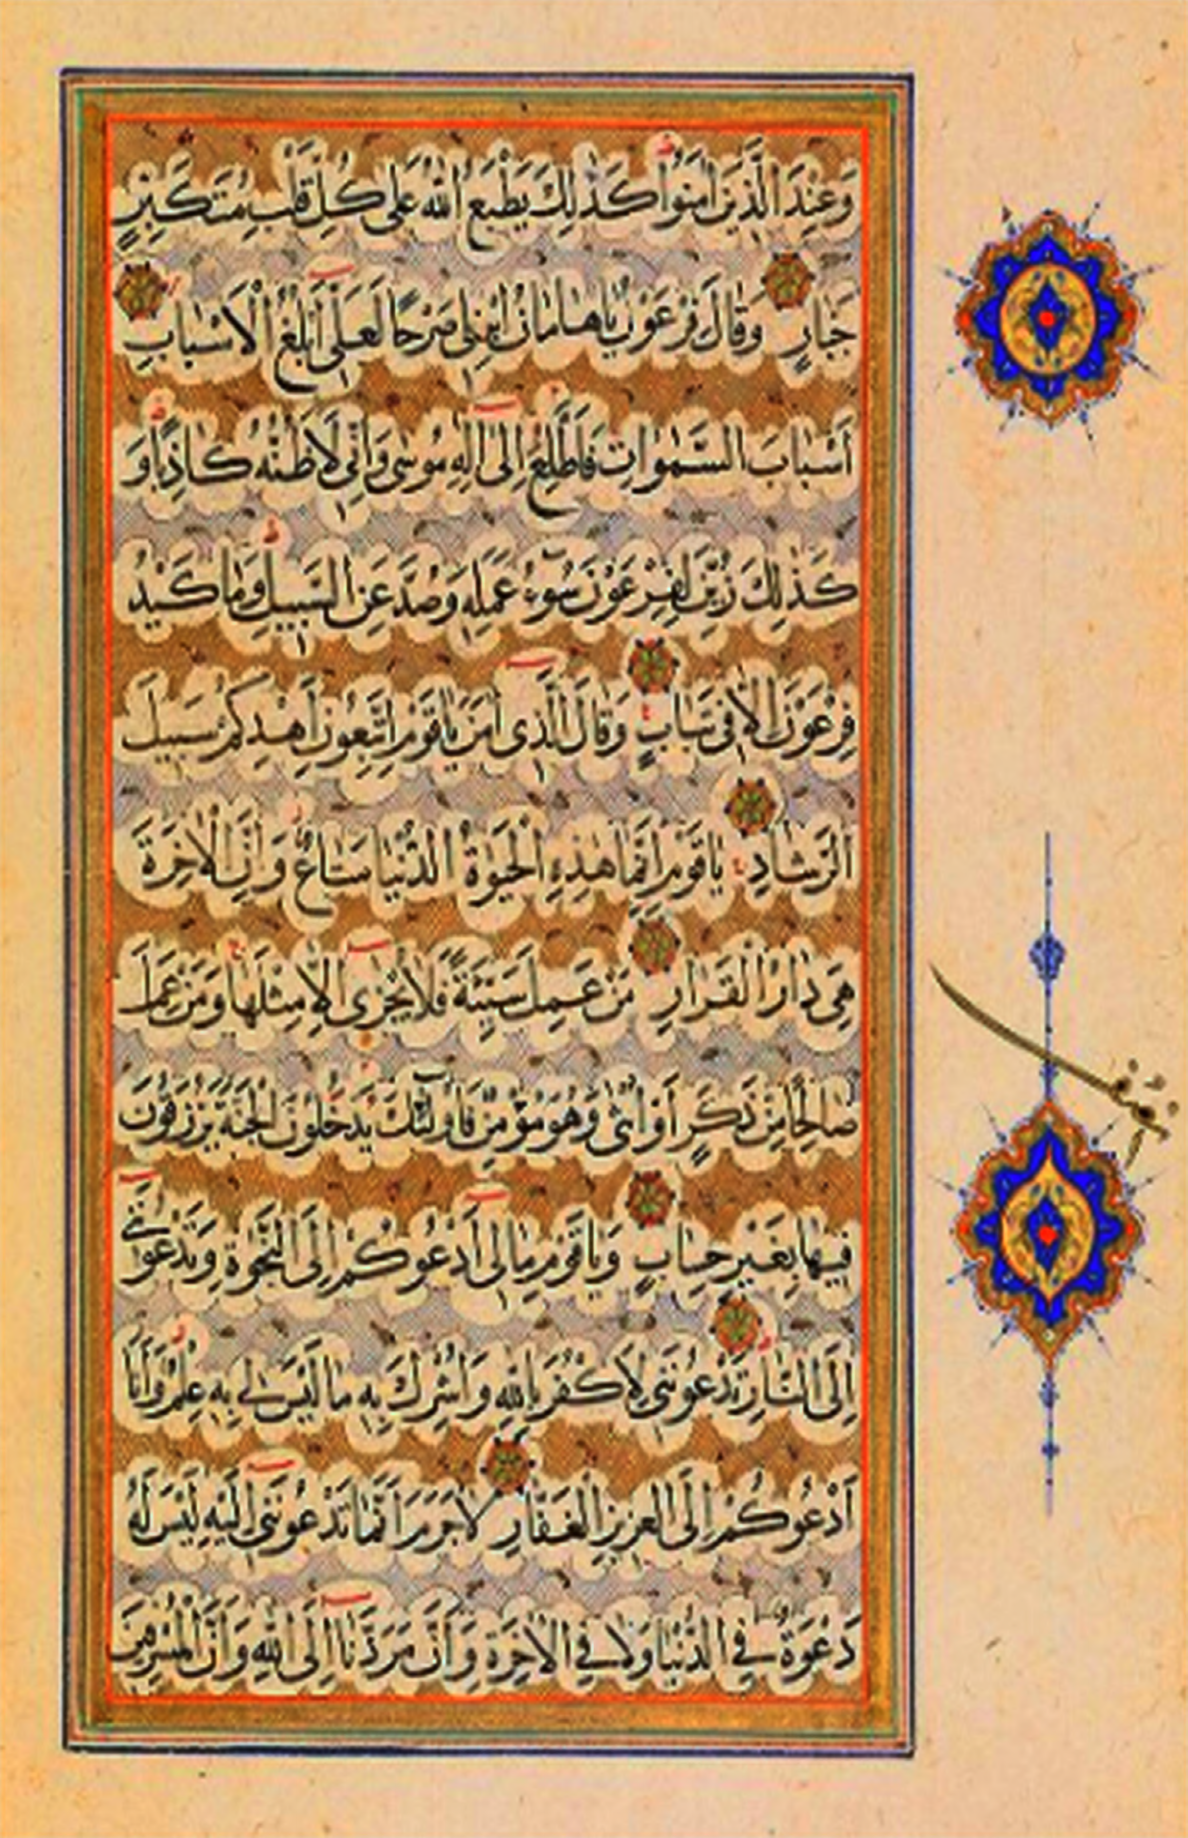 وَعِنْدَ الَّذِينَ اٰمَنُوا كَذٰلِكَ يَطْبَعُ اللّٰهُ عَلٰى كُلِّ قَلْبِ مُتَكَبِّرٍ
جَبَّارٍ وَقَالَ فِرْعَوْنُ يَاهَامَانُ ابْنِ لِى صَرْحًا لَعَلِّى أَبْلُغُ الْأَسْبَابَ
أَسْبَابَ السَّمٰوَاتِ فَأَطَّلِعَ إِلٰى إِلٰهِ مُوسٰى وَإِنِّى لَأَظُنُّهُ كَاذِبًا وَ
كَذٰلِكَ زُيِّنَ لِفِرْعَوْنَ سُوٓءُ عَمَلِهِ وَصُدَّ عَنِ السَّبِيلِ وَمَا كَيْدُ
فِرْعَوْنَ إِلَّا فِى تَبَابٍ وَقَالَ الَّذِى اٰمَنَ يَاقَوْمِ اتَّبِعُونِ أَهْدِكُمْ سَبِيلَ
الرَّشَادِ يَاقَوْمِ إِنَّمَا هٰذِهِ الْحَيٰوةُ الدُّنْيَا مَتَاعٌ وَإِنَّ الْاٰخِرَةَ
هِىَ دَارُ الْقَرَارِ مَنْ عَمِلَ سَيِّئَةً فَلَا يُجْزٰى إِلَّا مِثْلَهَا وَمَنْ عَمِلَ
صَالِحًا مِنْ ذَكَرٍ أَوْ أُنْثٰى وَهُوَ مُؤْمِنٌ فَأُولٰئِكَ يَدْخُلُونَ الْجَنَّةَ يُرْزَقُونَ
فِيهَا بِغَيْرِ حِسَابٍ وَيَاقَوْمِ مَا لِى أَدْعُوكُمْ إِلَى النَّجٰوةِ وَتَدْعُونَنِى
إِلَى النَّارِ تَدْعُونَنِى لِأَكْفُرَ بِاللّٰهِ وَأُشْرِكَ بِهِ مَا لَيْسَ لِى بِهِ عِلْمٌ وَأَنَا
أَدْعُوكُمْ إِلَى الْعَزِيزِ الْغَفَّارِ لَا جَرَمَ أَنَّمَا تَدْعُونَنِى إِلَيْهِ لَيْسَ لَهُ
دَعْوَةٌ فِى الدُّنْيَا وَلَا فِى الْاٰخِرَةِ وَأَنَّ مَرَدَّنَا إِلَى اللّٰهِ وَأَنَّ الْمُسْرِفِينَ